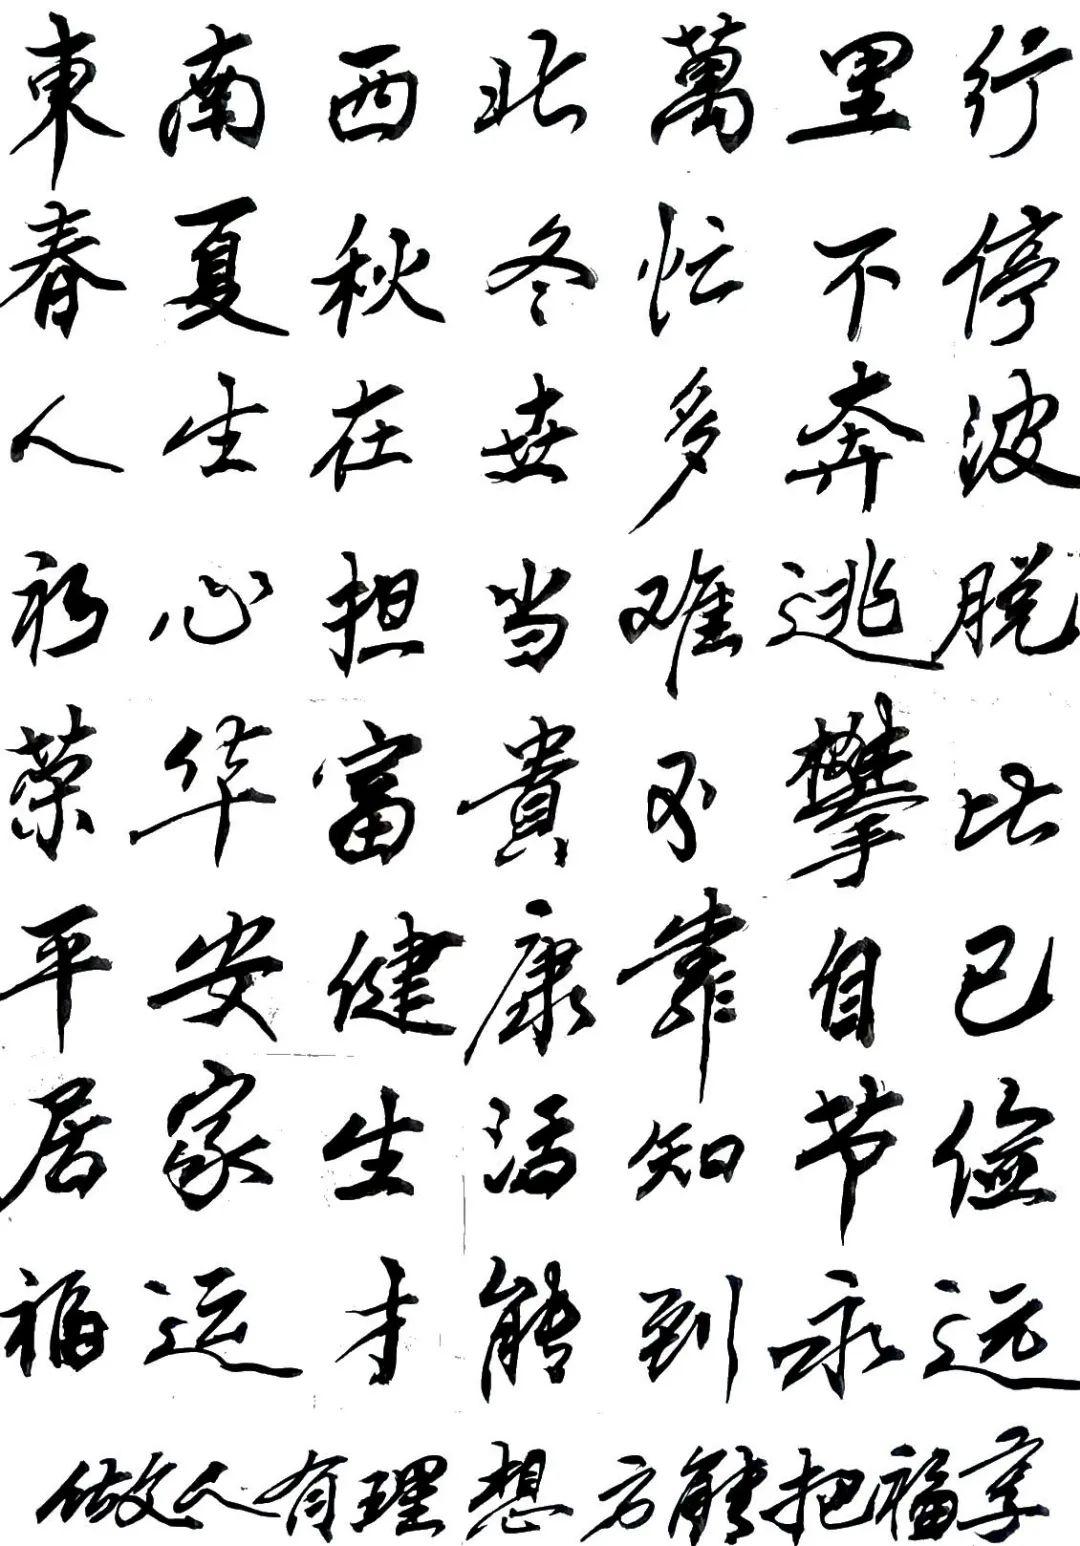 東南西北萬里行
春夏秋冬忙不停
人生在世多奔波
初心担当难逃脱
荣华富貴不攀比
平安健康靠自己
居家生活知节俭
福运才能到永远
做人有理想方能把福享